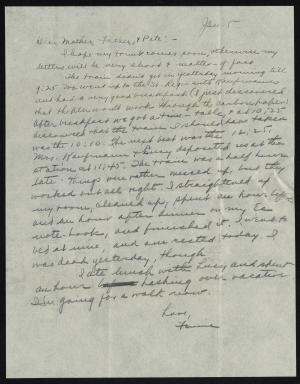 Jan. 5
Dear Mother, Father, & Pete: -
I hope my trunk comes soon, otherwise my
letters will be very short & matter-of-fact.
The train didn't get in yesterday morning till
9:25. We went up to the St. Regis with Kaufmanns
and had a very good breakfast. (I just discovered
that this pen won't work through the carbon paper.)
After breakfast we got a time-table, & at 10:25
discovered that the train I should have taken
was the 10:10. The next best was the 12:25.
Mrs. Kaufmann & Lucy deposited us at the
station at 11:45. The train was a half hour
late. Things were rather messed up, but they
worked out all right. I straightened up
my room, cleaned up, spent an hour before
and an hour after dinner on my Ec.
note-book, and finished it. I went to
bed at nine, and am rested today. I
was dead yesterday, though.
I ate lunch with Lucy and spent
an hour hashing over vacation
I'm going for a walk now.
Love,